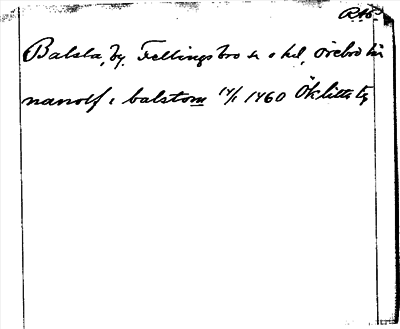 RAö
Balsta, by, Fellingsbro sn o hd, Örebro län
nanolf i balstom 14/1 1460 Öknebo